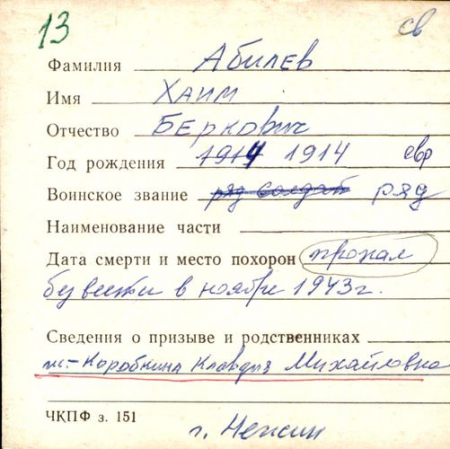 13 св
Фамилия Абилев
Имя Хаим
Отчество Беркович
Год рождения 1914 1914 евр
Воинское звание ряд солдат ряд
Наименование части
Дата смерти и место похорон пропал
без вести в ноябре 1943 г.
Сведения о призыве и родственниках
ж- Коробкина Клавдия Михайловна
ЧКПФ з. 151
г. Нежин